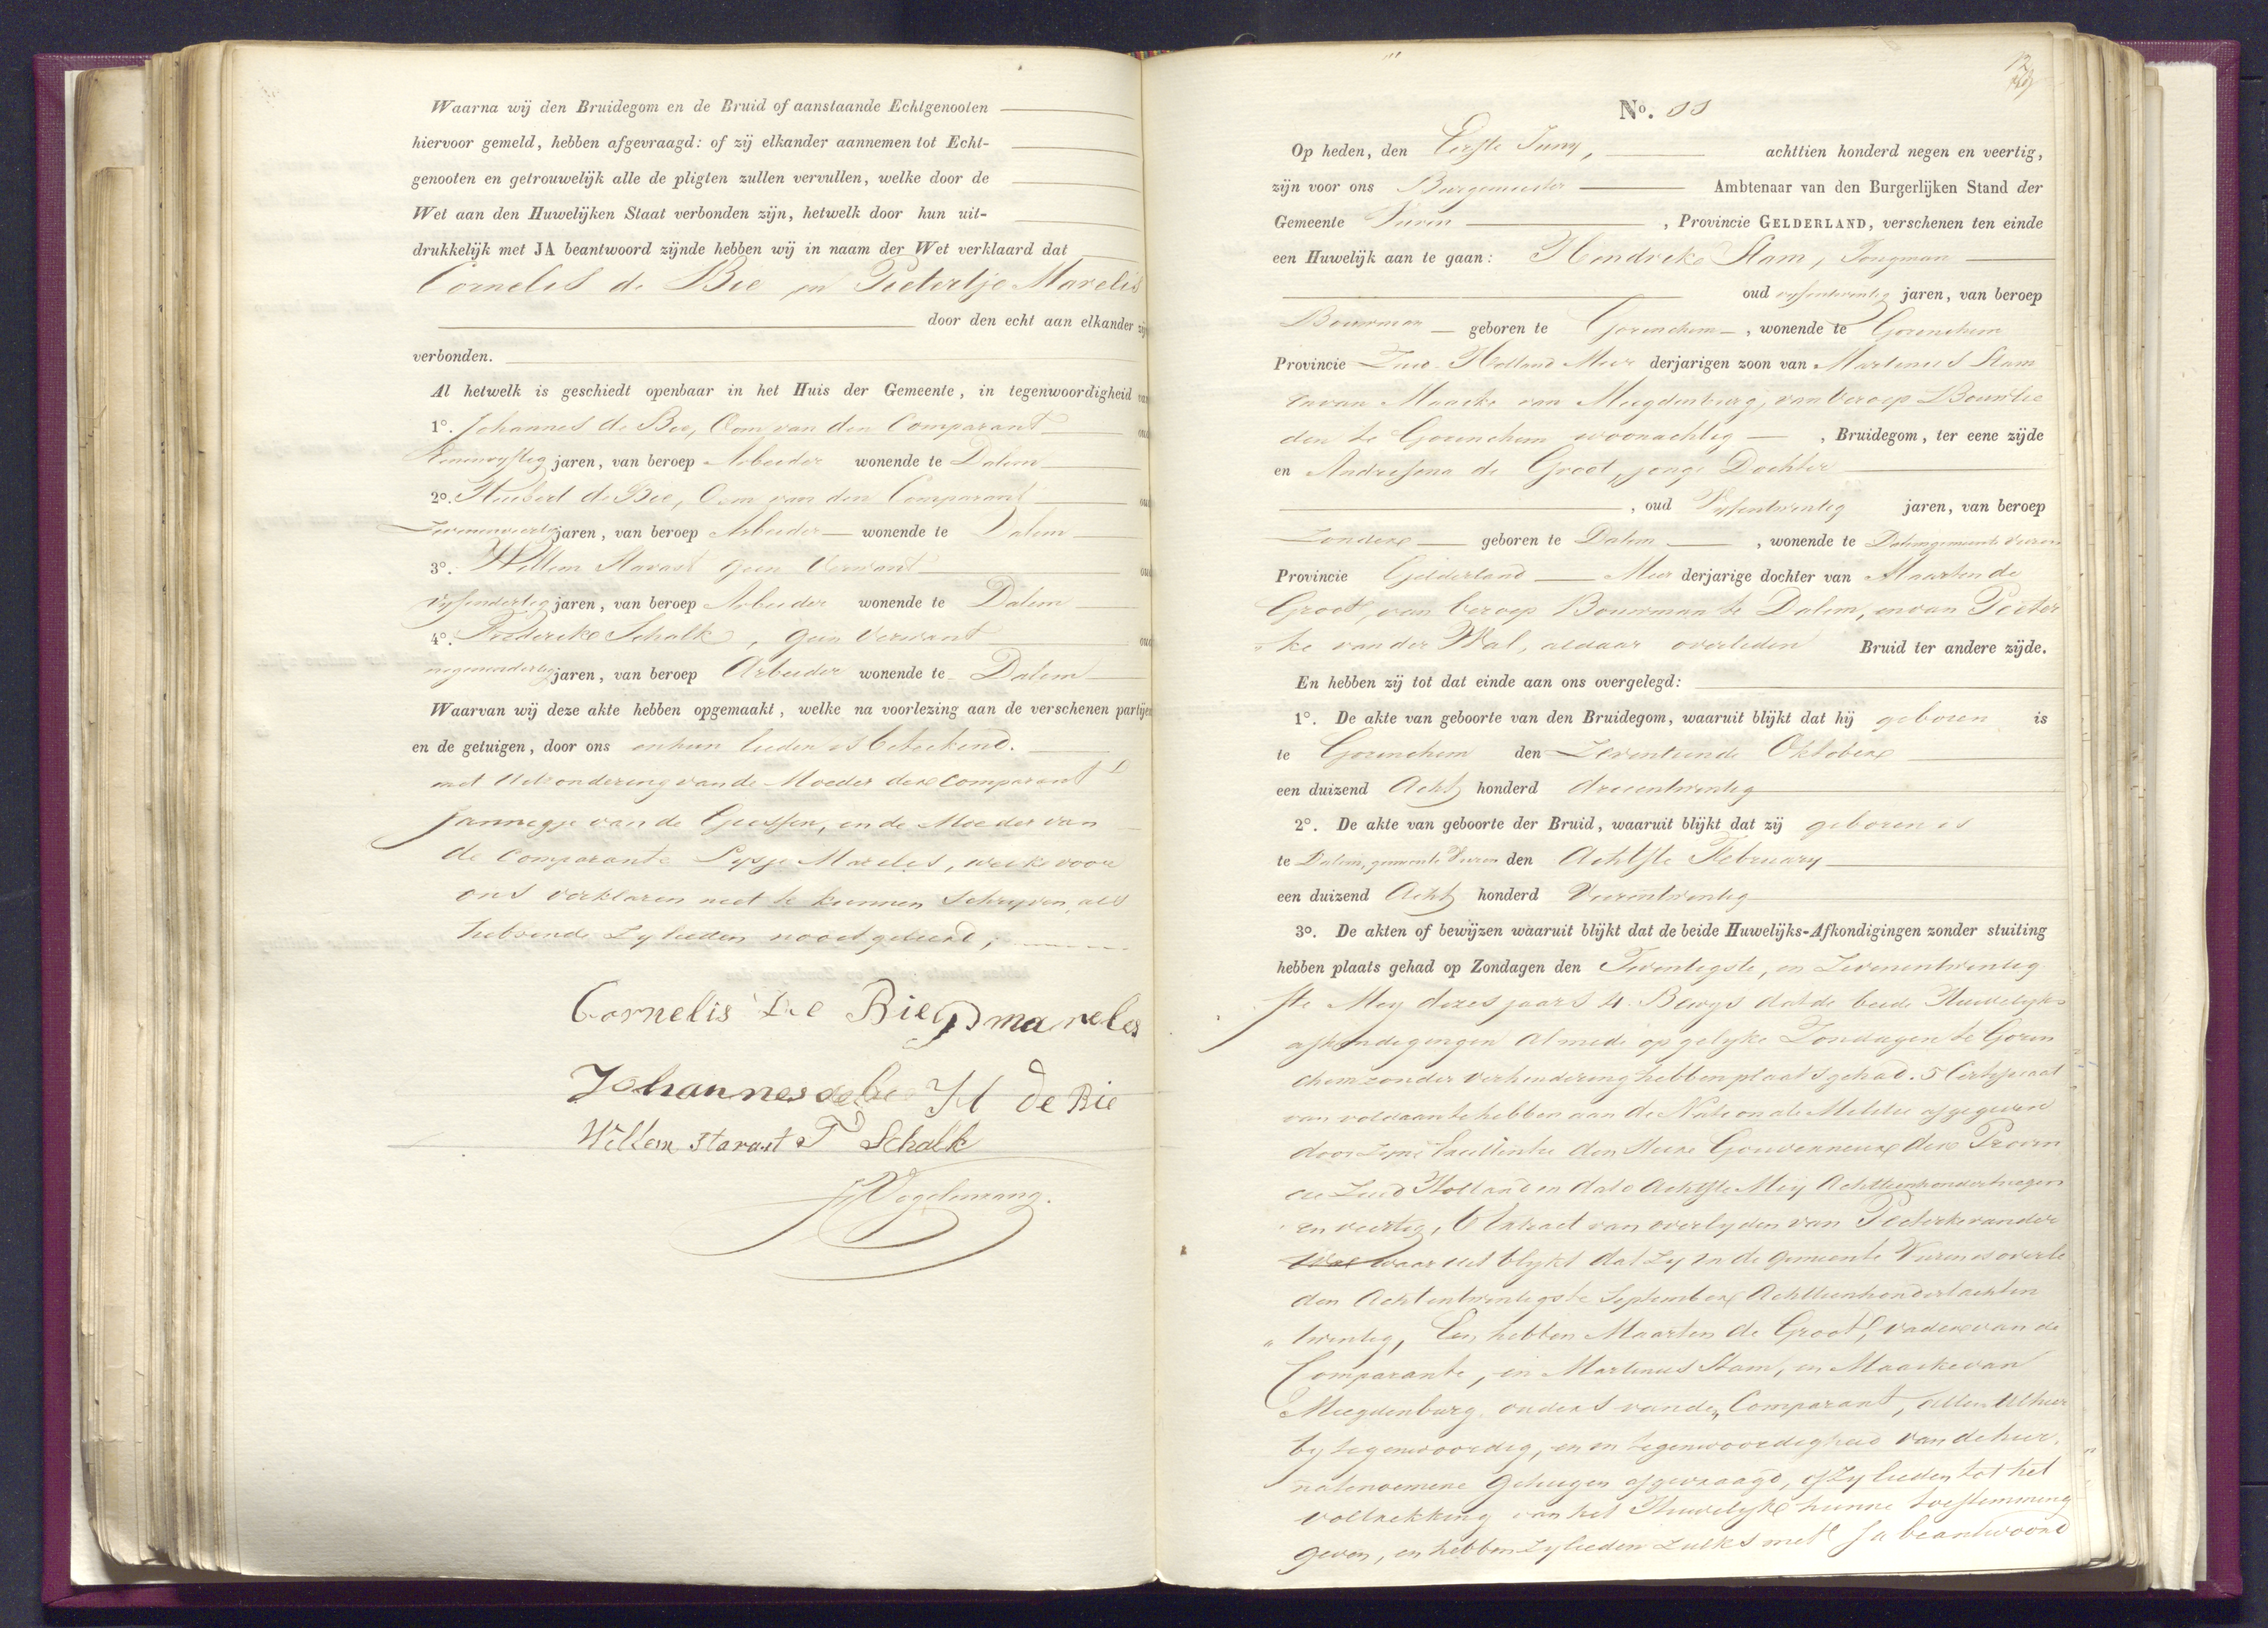 Waarna wij den Bruidegom en de Bruid of aanstaande Echtgenooten
hiervoor gemeld, hebben afgevraagd: of zij elkander aannemen tot Echt-
genooten en getrouwelijk alle de pligten zullen vervullen, welke door de
Wet aan den Huwelijken Staat verbonden zijn, hetwelk door hun uit-
drukkelijk met JA beantwoord zijnde hebben wij in naam der Wet verklaard dat
Cornelis de Bie en Pietertje Marelis
door den echt aan elkander zijn
verbonden.
Al hetwelk is geschiedt openbaar in het Huis der Gemeente, in tegenwoordigheid van
1°. Johannes de Bie, Oom van den Comparant oud
jaren, van beroep Arbeider wonende te Dalem
2°. Huibert de Bie, Oom van den Comparant oud
Zevenenveertig jaren, van beroep Arbeider wonende te Dalem
3°. Willem Stavast geen Verwant oud
vyfendertig jaren, van beroep Arbeider wonende te Dalem
4°. Frederike Schalk, geen Verwant oud
negenendertig jaren, van beroep Arbeider wonende te Dalem
Waarvan wij deze akte hebben opgemaakt, welke na voorlezing aan de verschenen partijen
en de getuigen, door ons en hun lieden is beteekend.
met uitzondering van de Moeder der Comparant
Jannegje van de Giessen, en de Moeder van
de Comparante Lysje Marelis, welke voor
ons verklaren niet te kunnen Schryven, als
hebbende Zylieden nooit geleerd;
Cornelis De Bie P marelis
Johannes de bie H de Bie
Willem stavast F Schalk
Vogelenzang.
12
No. 11
Op heden, den Eerste Juny, achttien honderd negen en veertig,
zijn voor ons Burgemeester Ambtenaar van den Burgerlijken Stand der
Gemeente Vuren, Provincie GELDERLAND, verschenen ten einde
een Huwelijk aan te gaan: Hendrik Stam, Jongman
oud vyfentwintig jaren, van beroep
Bouwman geboren te Gorinchem, wonende te Gorinchem
Provincie Zuid-Holland Meer derjarigen zoon van Martinus Stam
en van Maaike van Meegdenburg, van beroep Bouwlie
den te Gorinchem woonachtig, Bruidegom, ter eene zijde
en Andresona de Groot, jonge Dochter
, oud Vyfentwintig jaren, van beroep
Zonder geboren te Dalem, wonende te Dalem gemeente Vuren
Provincie Gelderland Meer derjarige dochter van Maarten de
Groot, van beroep Bouwman te Dalem, en van Pieter
ke van der Wal, aldaar overleden Bruid ter andere zijde.
En hebben zij tot dat einde aan ons overgelegd:
1°. De akte van geboorte van den Bruidegom, waaruit blijkt dat hij geboren is
te Gorinchem den Zeventiende Oktober
een duizend Acht honderd drieentwintig
2°. De akte van geboorte der Bruid, waaruit blijkt dat zij geboren is
te Dalem, gemeente Vuren den Achtste February
een duizend Acht honderd Vierentwintig
3°. De akten of bewijzen waaruit blijkt dat de beide Huwelijks-Afkondigingen zonder stuiting
hebben plaats gehad op Zondagen den Twintigste, en Zevenentwintig
ste Mey dezes jaars 4. Bewys dat de beide Huwelyks
afkondigingen Almede op gelyke Zondagen te Gorin
chem zonder verhindering hebben plaats gehad. 5 Certificaat
van voldaan te hebben aan de Nationale Militie afgegeven
door Zyne Excellentie den Heere Gouverneur der Provin
cie Zuid Holland in dato Achtste Mey Achttienhondert negen
en veertig, 6 Extract van overlyden van Pieterke van der
Wal waar uit blykt dat Zy in de gemeente Vuren is overle
den Achtentwintigste September Achttienhondert achten
twintig, En hebben Maarten de Groot, vader van de
Comparante, en Martinus Stam, en Maaike van
Meegdenburg, ouders van den Comparant, allen Alhier
by tegenwoordig, en in tegenwoordigheid van de hier
natenoemene Getuigen afgevraagd, of Zylieden tot het
voltrekking van het Huwelyk hunne toestemming
geven, en hebben Zylieden zulks met Ja beantwoord